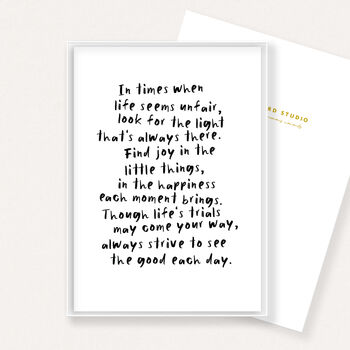 In times when
life seems unfair,
look for the light
that's always there.
Find joy in the
little things,
in the happiness
each moment brings.
Though life's trials
may come your way,
always strive to see
the good each day.
STUDIO